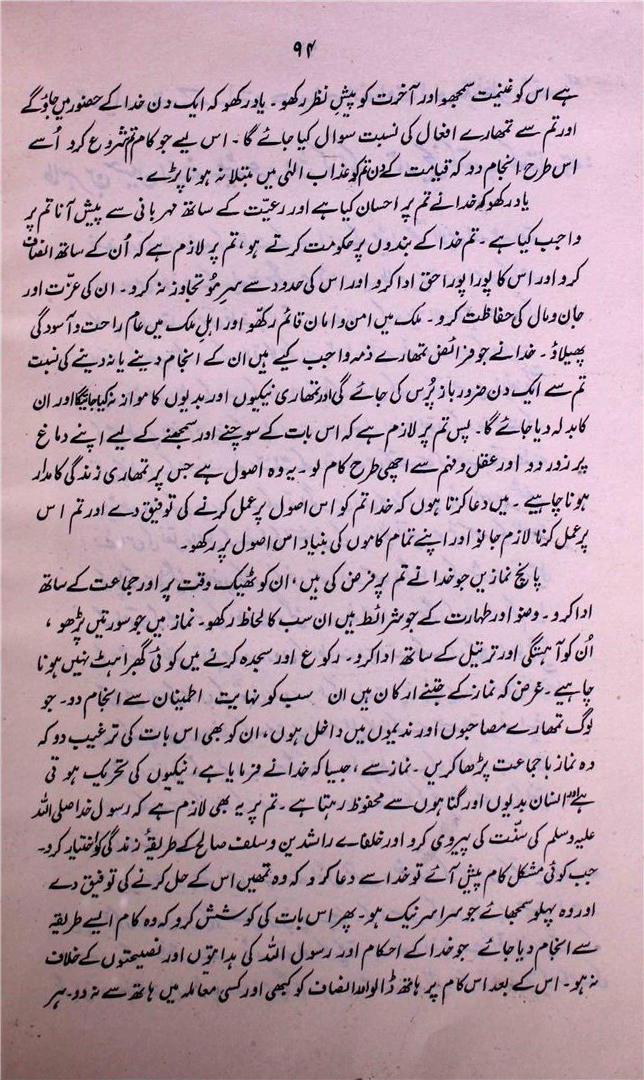 ۹۴
ہے اس کو غنیمت سمجھو اور آخرت کو پیشِ نظر رکھو۔ یاد رکھو کہ ایک دن خدا کے حضور میں جاؤ گے
اور تم سے تمھارے افعال کی نسبت سوال کیا جائے گا۔ اس لیے جو کام تم شروع کرو اُسے
اس طرح انجام دو کہ قیامت کے دن تم کو عذاب الہٰی میں مبتلا نہ ہونا پڑے۔
یاد رکھو کہ خدا نے تم پر احسان کیا ہے اور رعیّت کے ساتھ مہربانی سے پیش آنا تم پر
واجب کیا ہے۔ تم خدا کے بندوں پر حکومت کرتے ہو، تم پر لازم ہے کہ اُن کے ساتھ انصاف
کرو اور اس کا پورا پورا حق ادا کرو اور اس کی حدود سے سرِ مُو تجاوز نہ کرو۔ ان کی عزّت اور
جان و مال کی حفاظت کرو۔ ملک میں امن و امان قائم رکھو اور اہلِ ملک میں عام راحت و آسودگی
پھیلاؤ۔ خدا نے جو فرائض تمھارے ذمہ واجب کیے ہیں ان کے انجام دینے یا نہ دینے کی نسبت
تم سے ایک دن ضرور باز پُرس کی جائے گی اور تمھاری نیکیوں اور بدیوں کا موازنہ کیا جائیگا اور ان
کا بدلہ دیا جائے گا۔ پس تم پر لازم ہے کہ اس بات کے سوچنے اور سمجھنے کے لیے اپنے دماغ
پر زور دو اور عقل و فہم سے اچھی طرح کام لو۔ یہ وہ اصول ہے جس پر تمھاری زندگی کا مدار
ہونا چاہیے۔ میں دعا کرتا ہوں کہ خدا تم کو اس اصول پر عمل کرنے کی توفیق دے اور تم اس
پر عمل کرنا لازم جانو اور اپنے تمام کاموں کی بنیاد اس اصول پر رکھو۔
پانچ نمازیں جو خدا نے تم پر فرض کی ہیں، ان کو ٹھیک وقت پر اور جماعت کے ساتھ
ادا کرو۔ وضو اور طہارت کے جو شرائط ہیں ان سب کا لحاظ رکھو۔ نماز میں جو سورتیں پڑھو،
اُن کو آہستگی اور ترتیل کے ساتھ ادا کرو۔ رکوع اور سجدہ کرنے میں کوئی گھبراہٹ نہیں ہونا
چاہیے۔ غرض کہ نماز کے جتنے ارکان ہیں ان سب کو نہایت اطمینان سے انجام دو۔ جو
لوگ تمھارے مصاحبوں اور ندیموں میں داخل ہوں، ان کو بھی اس بات کی ترغیب دو کہ
وہ نماز با جماعت پڑھا کریں۔ نماز سے، جیسا کہ خدا نے فرمایا ہے، نیکیوں کی تحریک ہوتی
ہے اور انسان بدیوں اور گناہوں سے محفوظ رہتا ہے۔ تم پر یہ بھی لازم ہے کہ رسول خدا صلی اللہ
علیہ وسلم کی سنّت کی پیروی کرو اور خلفائے راشدین و سلف صالح کے طریقۂ زندگی کو اختیار کرو۔
جب کوئی مشکل کام پیش آئے تو خدا سے دعا کرو کہ وہ تمھیں اس کے حل کرنے کی توفیق دے
اور وہ پہلو سمجھائے جو سراسر نیک ہو۔ پھر اس بات کی کوشش کرو کہ وہ کام ایسے طریقہ
سے انجام دیا جائے جو خدا کے احکام اور رسول اللہ کی ہدایتوں اور نصیحتوں کے خلاف
نہ ہو۔ اس کے بعد اس کام پر ہاتھ ڈالو اور انصاف کو کبھی اور کسی معاملہ میں ہاتھ سے نہ دو۔ ہر